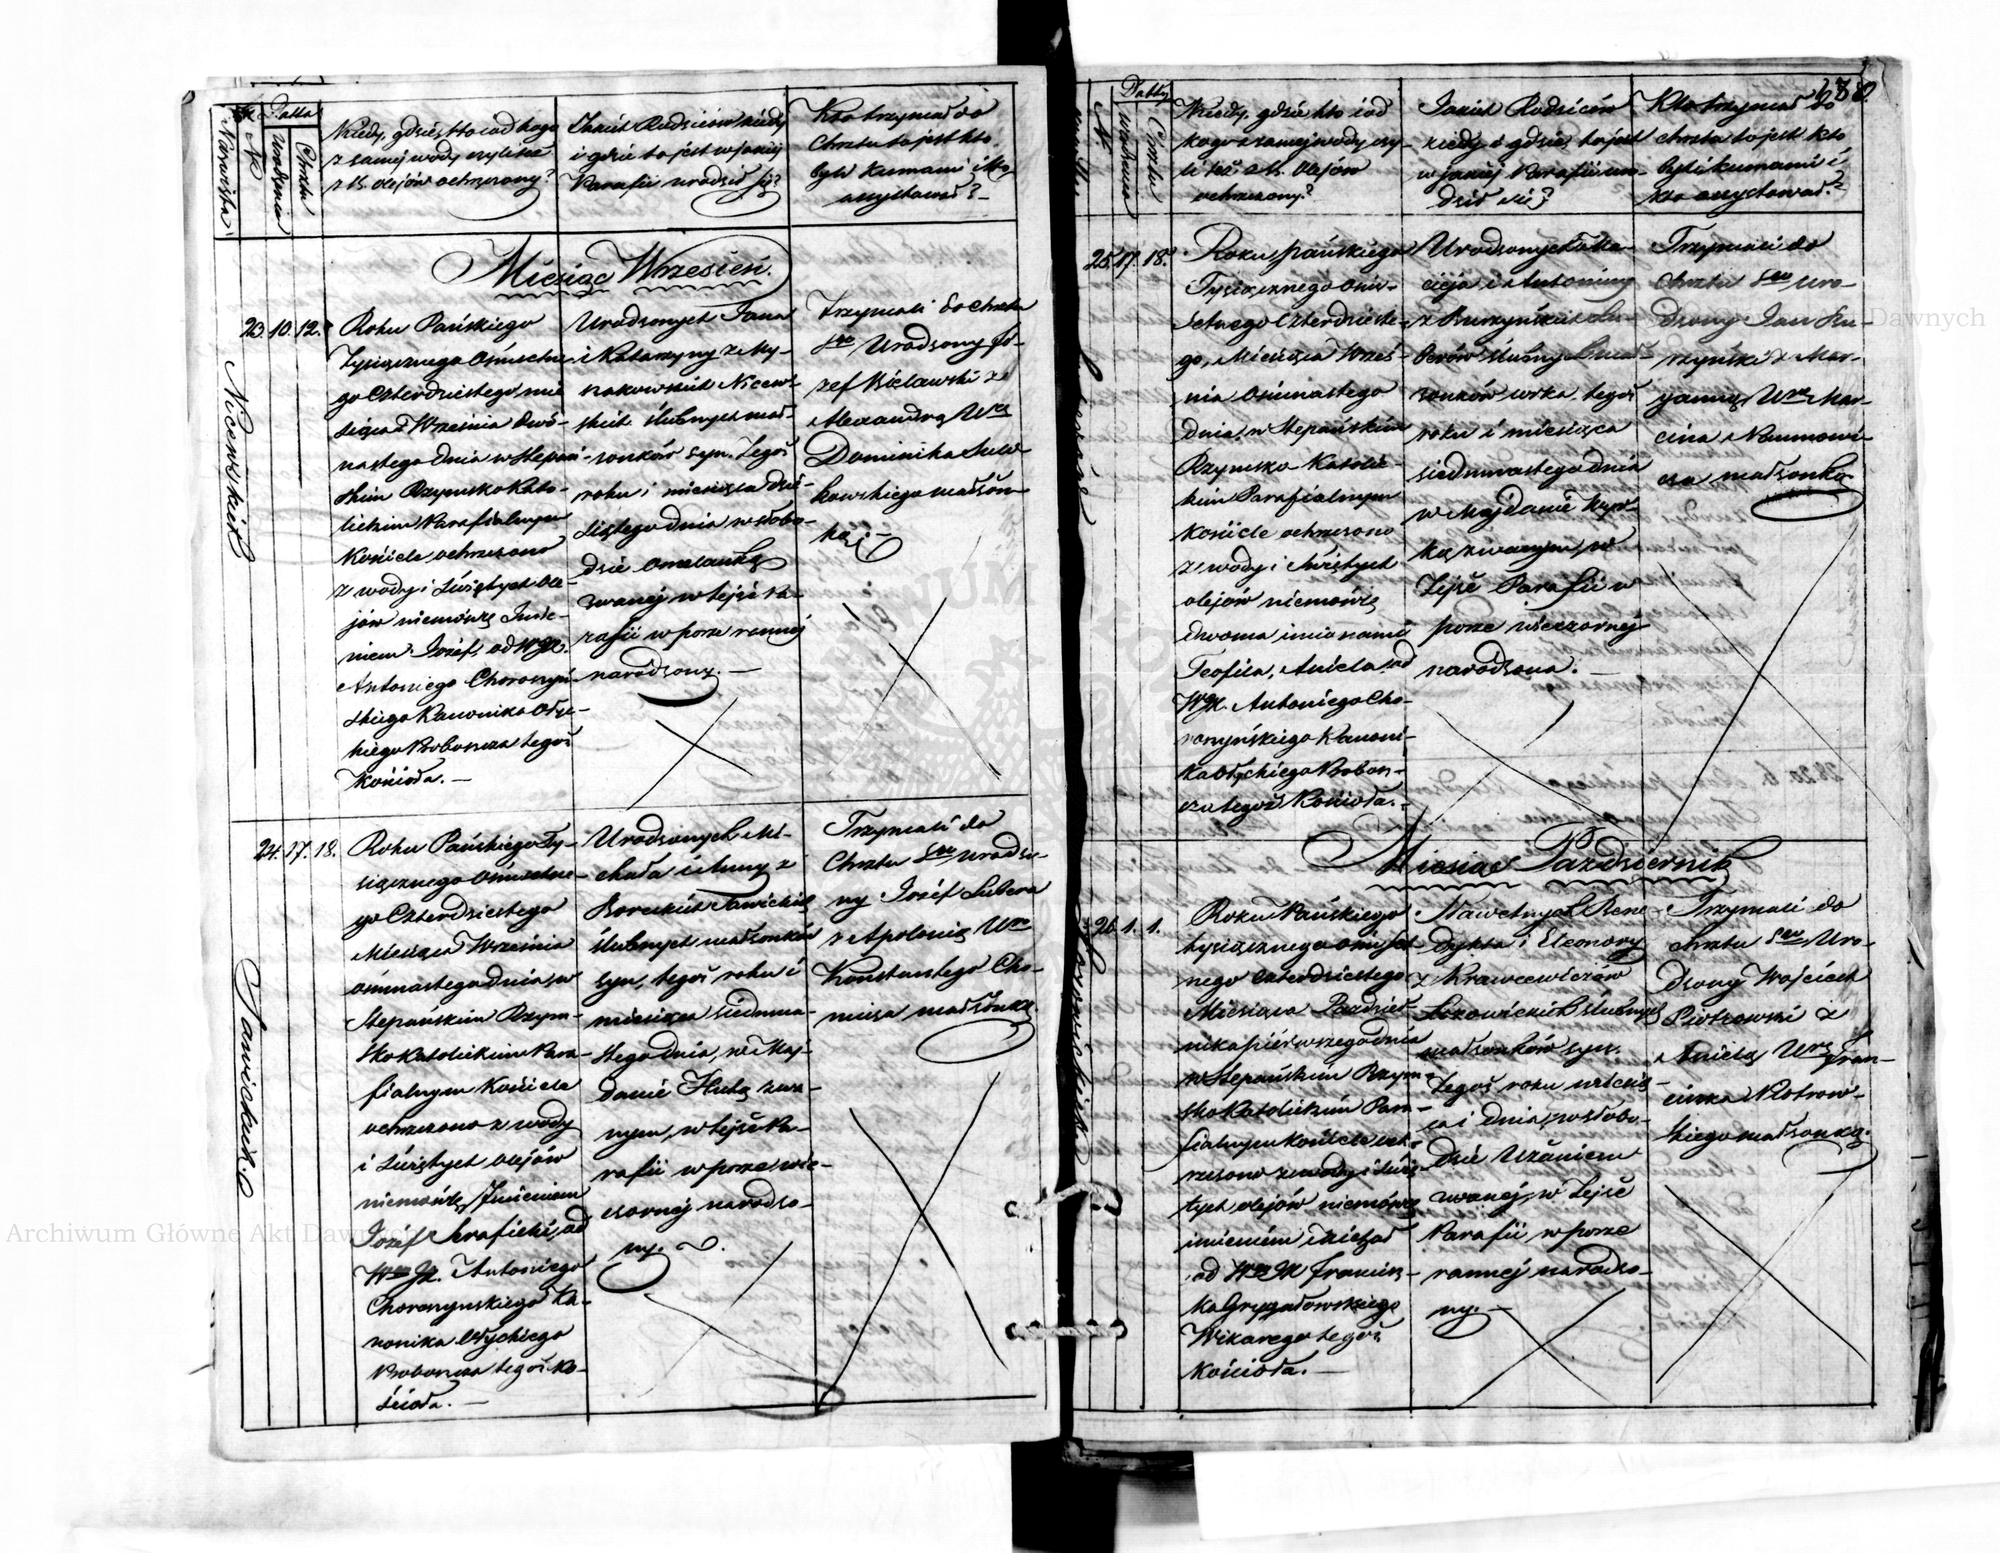 Nazwiska
N.
Datta
Urodzenia
Chrztu
Kiedy, gdzie, kto i od kogo
z samej wody czyli też
z ś. olejów ochrzczony?
Jakich Rodziców kiedy
i gdzie to jest w jakiej
Parafii urodził się?
Kto trzymał do
Chrztu to jest kto
byli Kumami i kto
assystował?
Miesiąc Wrzesień.
Nicewskich
23. 10. 12.
Roku Pańskiego
Tysiącznego Ośmsetne-
go Czterdziestego, mie-
siąca Września dwó-
nastego dnia w Stepań-
skim Rzymsko Kato-
lickim Parafialnym
Kościele ochrzczono
z wody i Świętych Ole-
jów niemowlę Imie-
niem Józef, od WJX.
Antoniego Choroszyń-
skiego Kanonika Ołyc-
kiego Proboszcza tegoż
Kościoła. —
Urodzonych Jana
i Katarzyny z My-
szakowskich Nicew-
skich ślubnych mał-
żonków syn. Tegoż
roku i miesiąca dzie-
siątego dnia w słobo-
dzie Omelanką
zwanej w tejże Pa-
rafii w porze rannej
narodzony. —
Trzymali do Chrztu
Sgo Urodzony Jó-
zef Bielawski z
Alexandrą Wgo
Dominika Sule-
kowskiego małżon-
ką. —
Sawickich.
24. 17. 18.
Roku Pańskiego Ty-
siącznego Ośmsetne-
go Czterdziestego
Miesiąca Września
ośmnastego dnia, w
Stepańskim Rzym-
sko Katolickim Para-
fialnym Kościele
ochrzczono z wody
i Świętych Olejów
niemowlę Imieniem
Józef Seraficki, od
WJX. Antoniego
Choroszynskiego Ka-
nonika Ołyckiego
Proboszcza tegoż Ko-
ścioła. —
Urodzonych Mi-
chała i Anny z
Boreckich Sawickich
ślubnych małżonków
syn, tegoż roku i
miesiąca siedmna-
stego dnia, w Maj-
danie Hutą zwa-
nym, w tejże Pa-
rafii w porze wie-
czornej narodzo-
ny.
Trzymali do
Chrztu Sgo Urodzo-
ny Józef Lubera
z Apolonią Wgo
Konstantego Cho-
micza małżonką.
N.
Datty
Urodzenia
Chrztu
Kiedy, gdzie, kto i od
kogo z samej wody czy-
li też z ś. Olejów
ochrzczony?
Jakich Rodziców
kiedy i gdzie, to jest
w jakiej Parafii uro-
dził się?
Kto trzymał do
chrztu to jest kto
byli kumami i
kto assystował?
25. 17. 18.
Roku Pańskiego
Tysiącznego Ośm-
setnego Czterdzieste-
go, Miesiąca Wrześ-
nia Ośmnastego
dnia, w Stepańskim
Rzymsko-Katolic-
kim Parafialnym
Kościele ochrzczono
z wody i Świętych
olejów niemowlę
dwoma imionami
Teofila, Aniela, od
WJX. Antoniego Cho-
roszyńskiego Kanoni-
ka Ołyckiego Probosz-
cza tegoż Kościoła. -
Urodzonych Ma-
cieja i Antoniny
z Burzyńskich Lu-
berów ślubnych mał-
żonków córka, tegoż
roku i miesiąca
siedmnastego dnia
w Majdanie
zwanym, w
Tejże Parafii w
porze wieczornej
narodzona. —
Trzymali do
Chrztu Sgo Uro-
dzony Jan Bu-
rzyński z Mar-
yanną Wgo Mar-
cina Naumowi-
cza małżonką.
Miesiąc Październik
26. 1. 1.
Roku Pańskiego
tysiącznego ośmset-
nego Czterdziestego
Miesiąca Paździer-
nika pierwszego dnia
w Stepańskim Rzym-
sko Katolickim Para-
fialnym Kościele och-
rzczono z wody i Świę-
tych olejów niemowlę
imieniem Michał
od WJX Francisz-
ka Grygałowskiego
Wikarego tegoż
Kościoła. —
Sławetnych Bene-
dykta i Eleonory
z Krawcewiczów
Łozowickich ślubnych
małżonków syn.
Tegoż roku miesią-
ca i dnia, w słobo-
dzie Użaniem
zwanej, w Tejże
Parafii w porze
rannej narodzo-
ny. —
Trzymali do
chrztu Sgo Uro-
dzony Wojciech
Piotrowski z
Anielą Wgo Fran-
ciszka Piotrow-
skiego małżonką.
Archiwum Główne Akt Dawnych